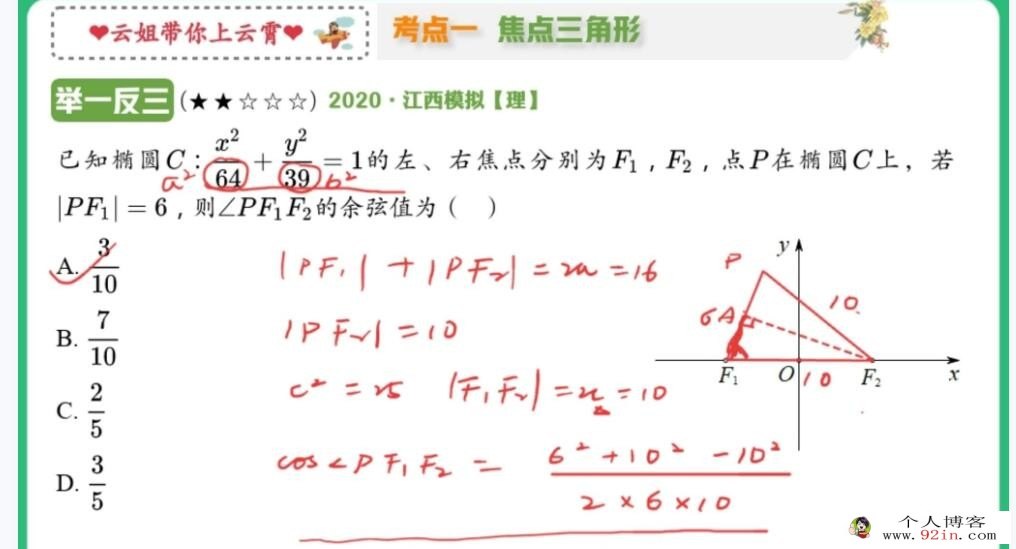 ❤云姐带你上云霄❤ 考点一 焦点三角形
举一反三 (★★☆☆☆) 2020·江西模拟【理】
已知椭圆C: x²/64 + y²/39 = 1的左、右焦点分别为F₁,F₂,点P在椭圆C上,若
a² b²
|PF₁|=6,则∠PF₁F₂的余弦值为( )
A. 3/10
B. 7/10
C. 2/5
D. 3/5
|PF₁|+|PF₂|=2a=16
|PF₂|=10
c²=25 |F₁F₂|=2c=10
cos∠PF₁F₂= 6²+10²-10² / 2×6×10
y
P
10
6 A
F₁ O 10 F₂ x
个人博客
www.92in.com